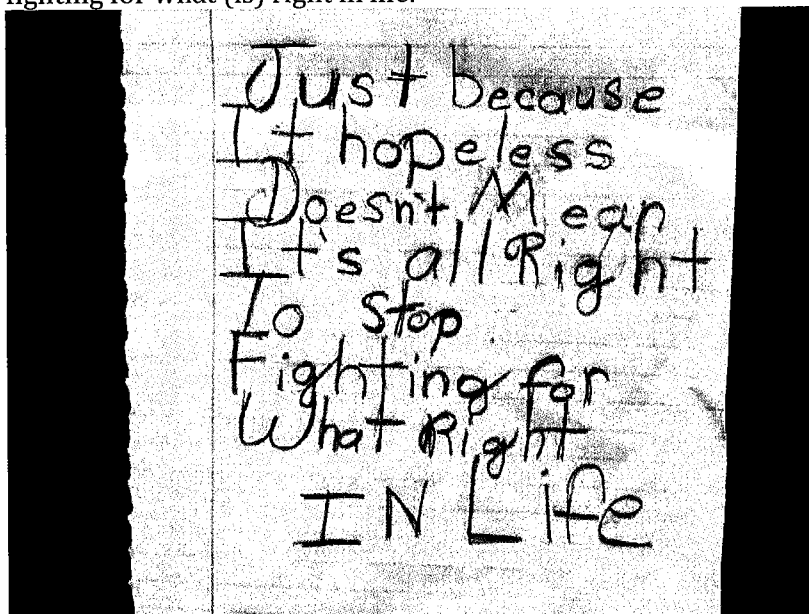 fighting for what (is) right in life.
Just because
It hopeless
Doesn't Mean
It's all Right
To Stop
Fighting for
What Right
IN Life